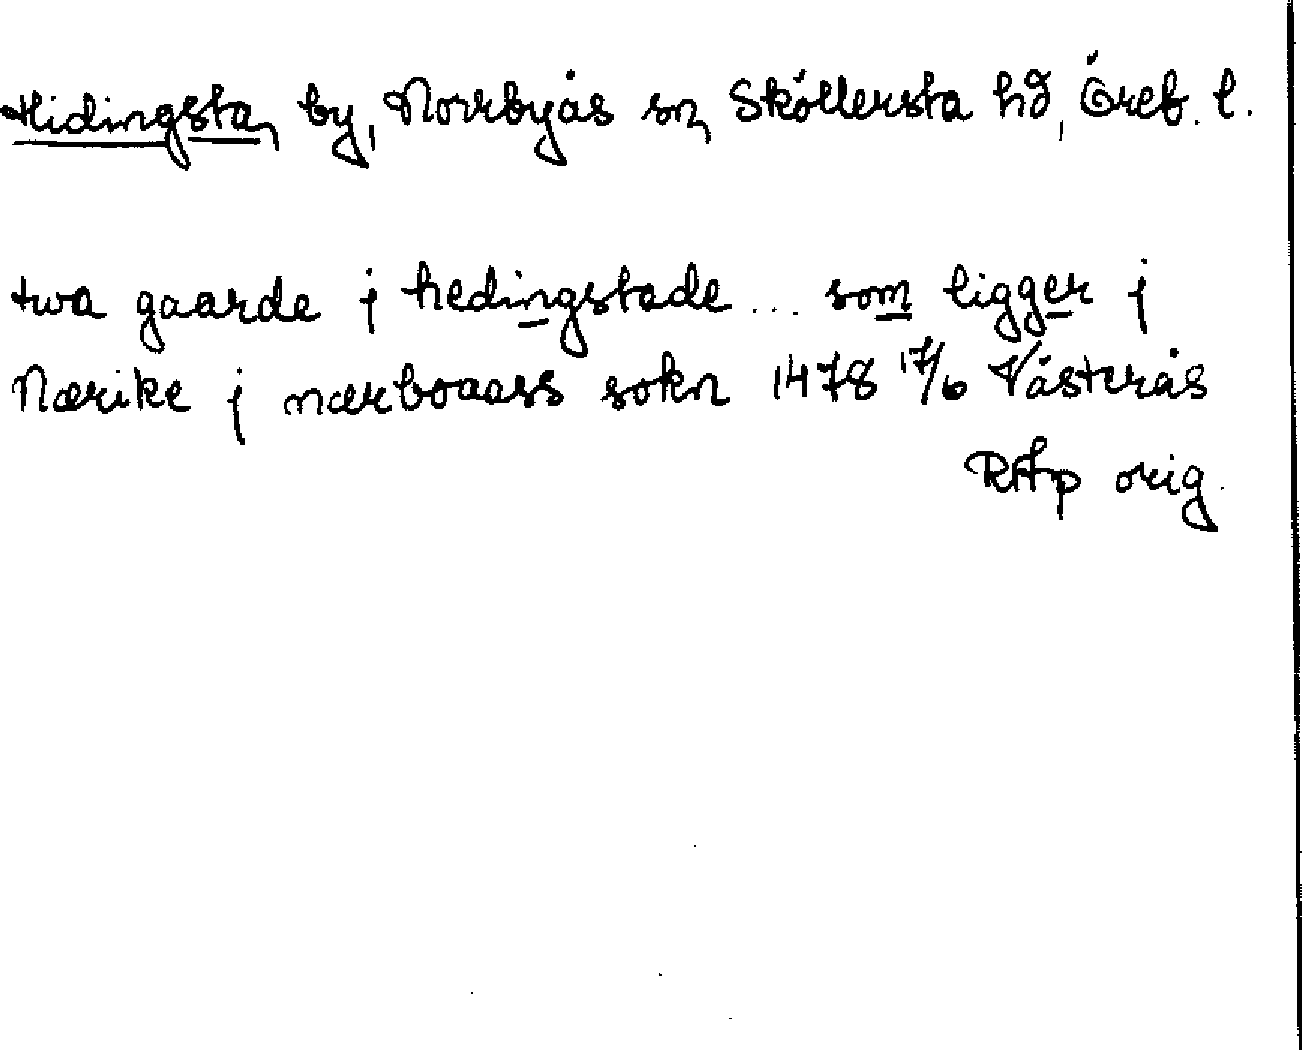 Hidingsta, by, Norrbyås sn, Sköllersta hd, Öreb. l.
twa gaarde j hedingstade ... som ligger j
Nærike j nærboaass sokn 1478 17/6 Västerås
RAp orig.